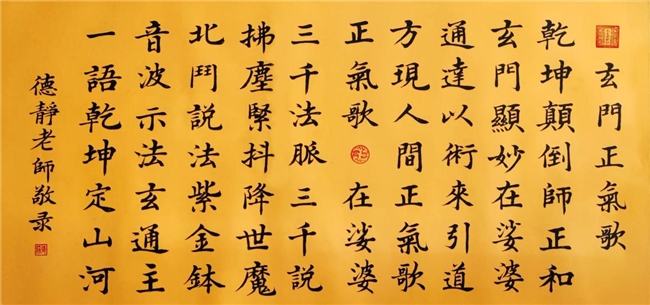 玄門正氣歌
乾坤顛倒師正和
玄門顯妙在娑婆
通達以術來引道
方現人間正氣歌
正氣歌 在娑婆
三千法脈三千説
拂塵緊抖降世魔
北鬥説法紫金鉢
音波示法玄通主
一語乾坤定山河
德靜老師敬录